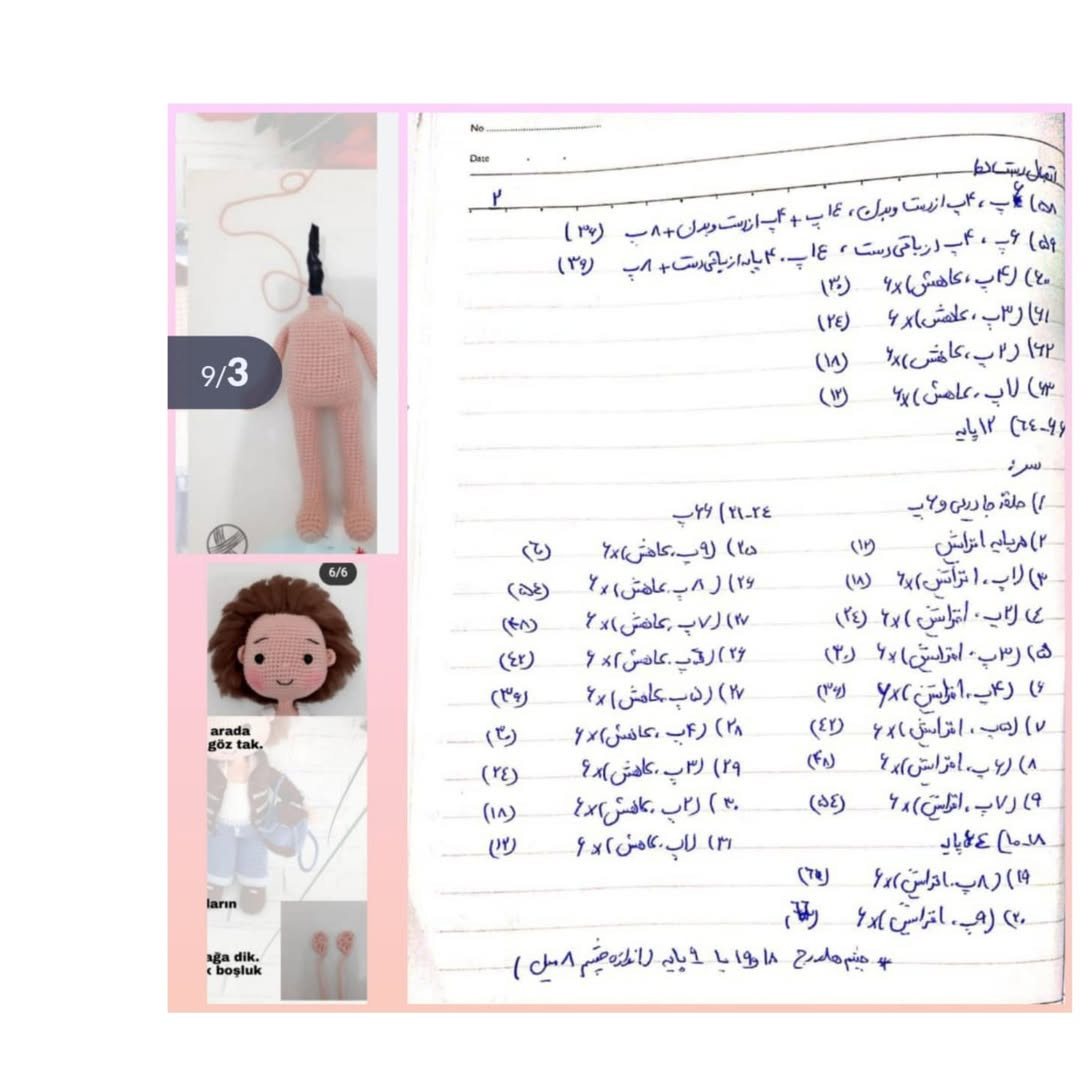 No
Date
۲
اتصال دستها
۵۸) ۶پ، ۴پ از دست و بدن، ۱٤پ + ۴پ از دست و بدن + ۸پ (۳۶)
۵۹) ۶پ، ۴پ از باقی دست، ۱٤پ، ۴ پایه از باقی دست + ۸پ (۳۶)
٦۰) (۴پ، کاهش)×۶ (۳۰)
۶۱) (۳پ، کاهش)×۶ (۲٤)
۶۲) (۲پ، کاهش)×۶ (۱۸)
۶۳) (۱پ، کاهش)×۶ (۱۲)
۶٤-۶۶) ۱۲ پایه
سر:
۱) حلقه جادویی و ۶پ
۲) هر پایه افزایش (۱۲)
۳) (۱پ، افزایش)×۶ (۱۸)
٤) (۲پ، افزایش)×۶ (۲٤)
۵) (۳پ، افزایش)×۶ (۳۰)
۶) (۴پ، افزایش)×۶ (۳۶)
۷) (۵پ، افزایش)×۶ (٤۲)
۸) (۶پ، افزایش)×۶ (۴۸)
۹) (۷پ، افزایش)×۶ (۵٤)
۱۰-۱۸) ۵٤ پایه
۱۹) (۸پ، افزایش)×۶ (٦۰)
۲۰) (۹پ، افزایش)×۶ (٦٦)
۲۱-۲٤) ۶۶پ
۲۵) (۹پ، کاهش)×۶ (٦۰)
۲۶) (۸پ، کاهش)×۶ (۵٤)
۲۷) (۷پ، کاهش)×۶ (۴۸)
۲۶) (٦پ، کاهش)×۶ (٤۲)
۲۷) (۵پ، کاهش)×۶ (۳۶)
۲۸) (۴پ، کاهش)×۶ (۳۰)
۲۹) (۳پ، کاهش)×۶ (۲٤)
۳۰) (۲پ، کاهش)×۶ (۱۸)
۳۱) (۱پ، کاهش)×۶ (۱۲)
* چشم ها در رج ۱۸ و ۱۹ با ۹ پایه (اندازه چشم ۸ میل)
9/3
6/6
arada
göz tak.
ların
ağa dik.
k boşluk